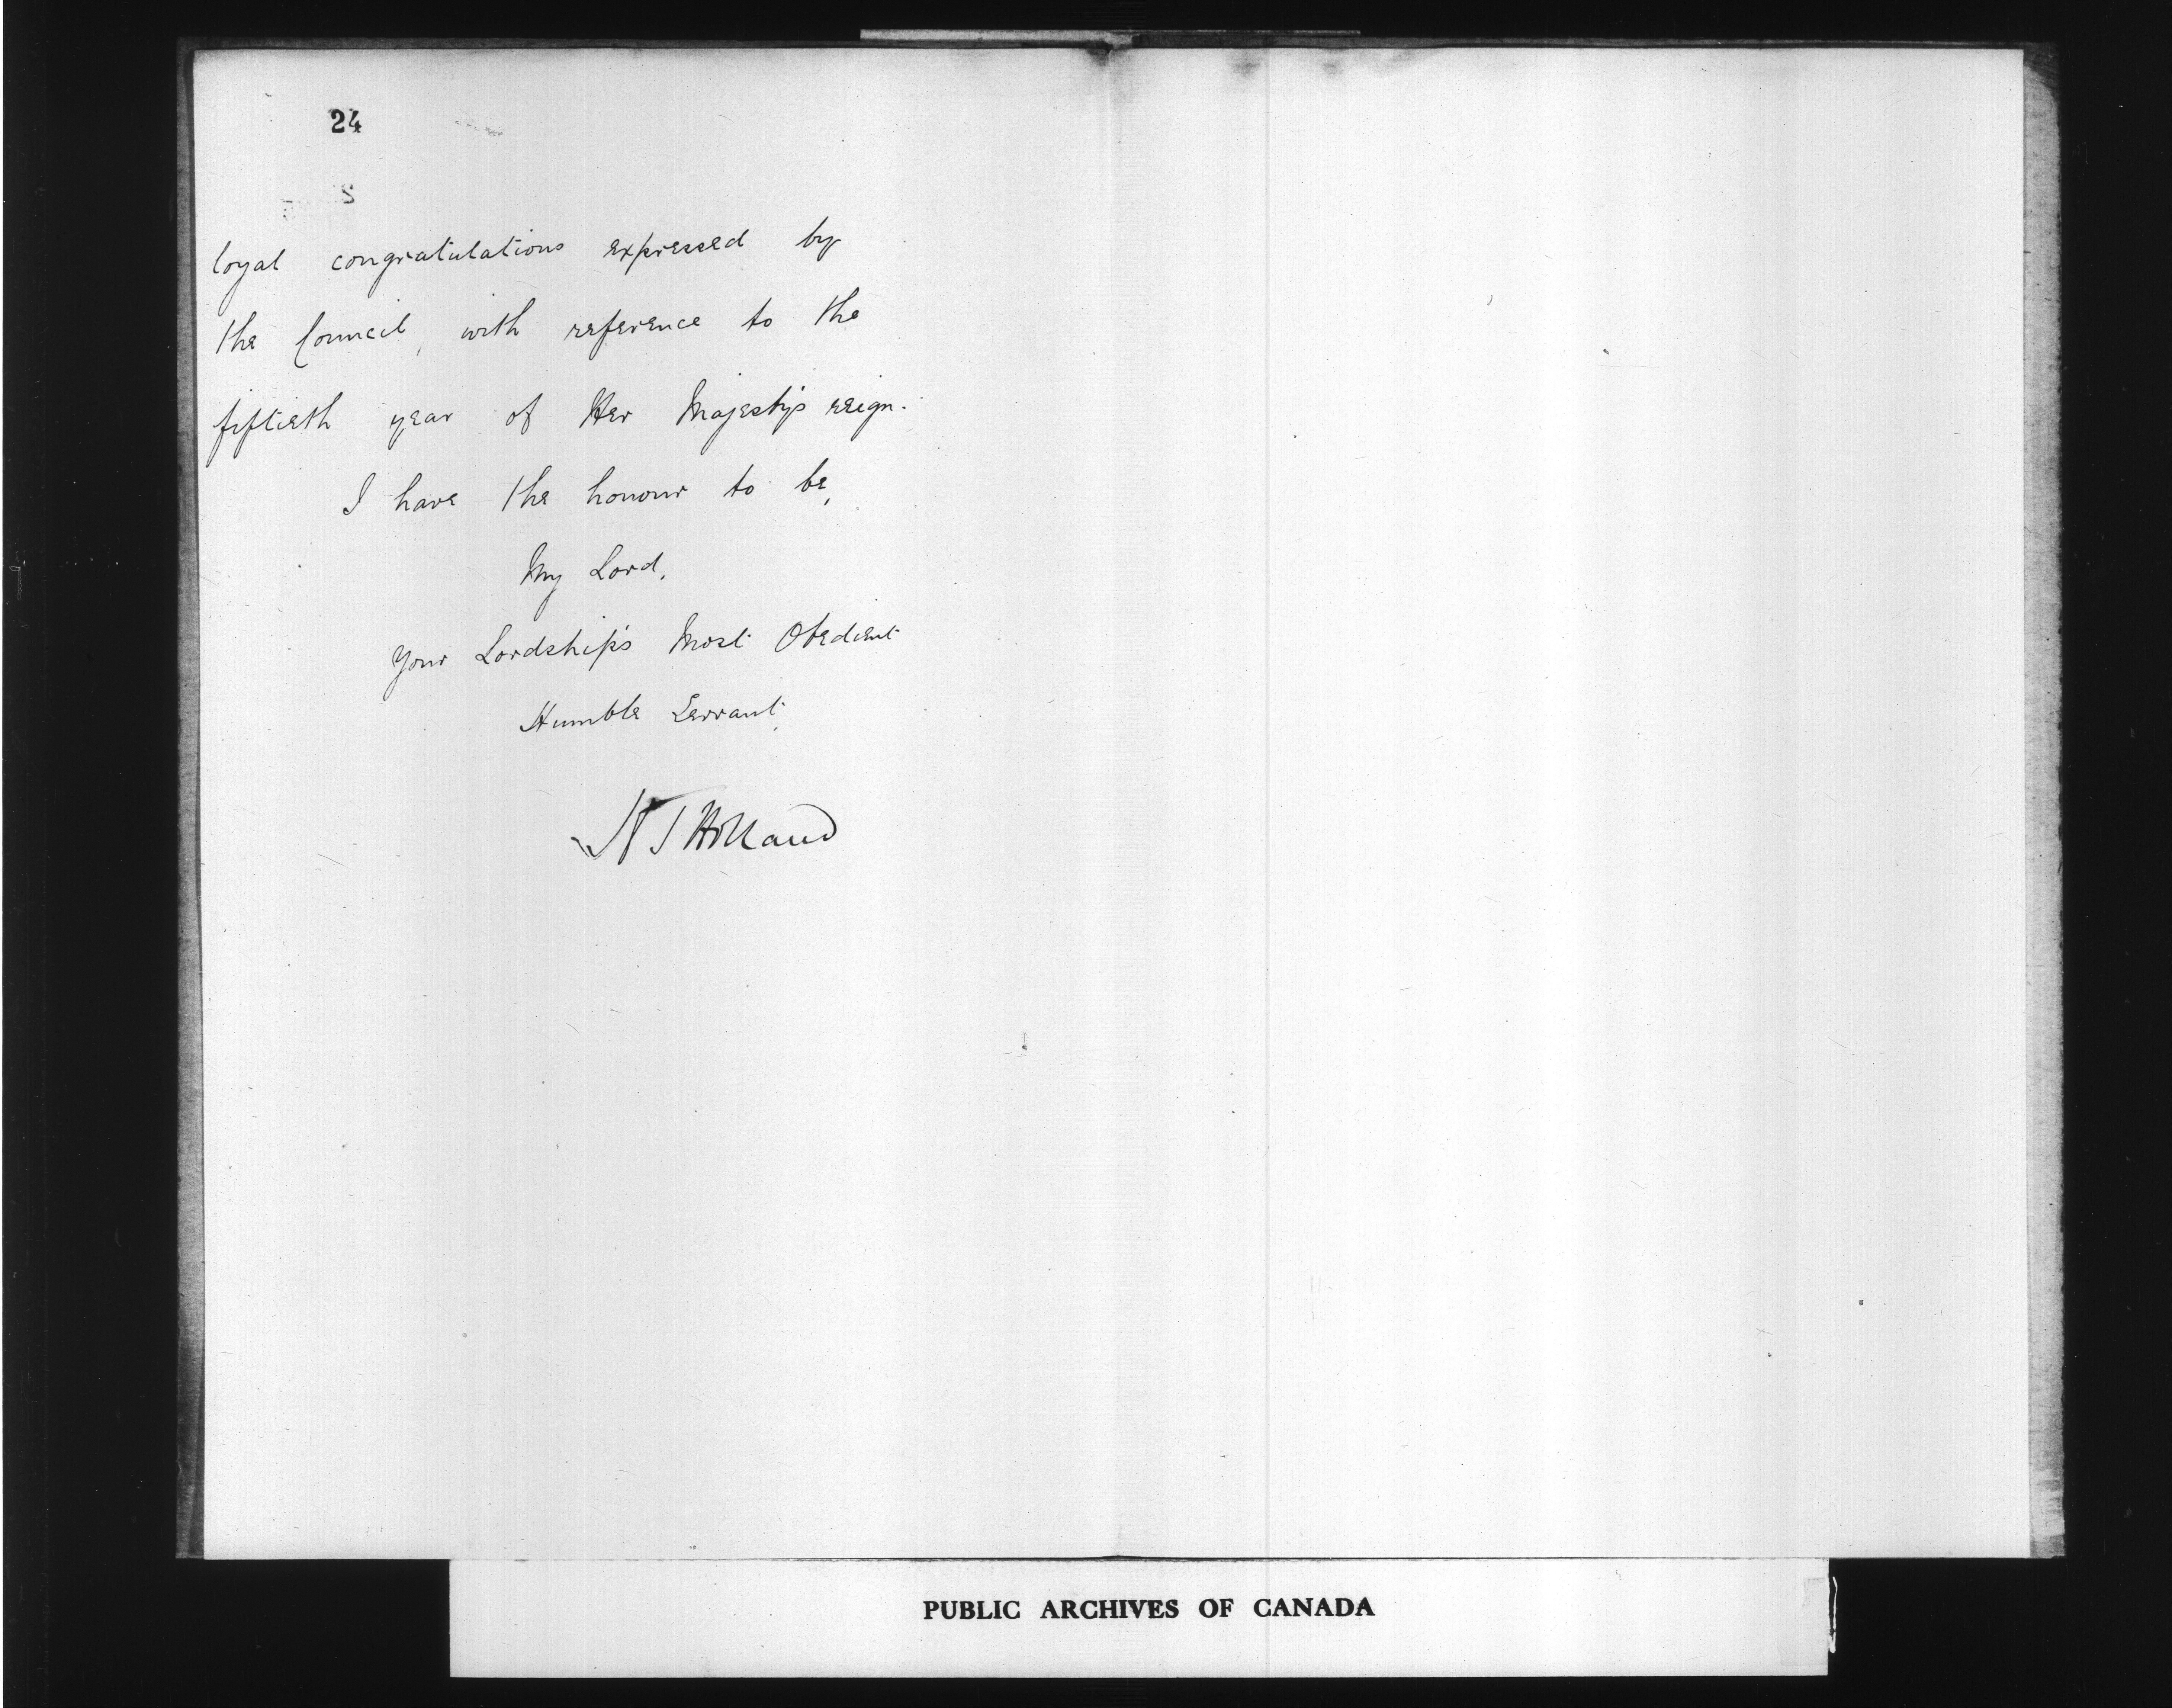 24
loyal congratulations expressed by
the Council, with reference to the
fiftieth year of Her Majesty's reign.
I have the honour to be,
My Lord,
Your Lordship's Most Obedient
Humble Servant,
Holland
PUBLIC ARCHIVES OF CANADA